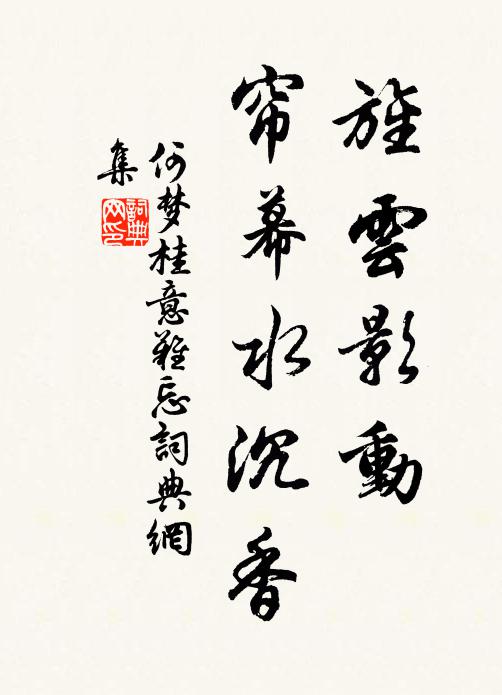 旌雲影動
帘幕水沉香
何梦桂意難忘詞典網
集
詞典
网印